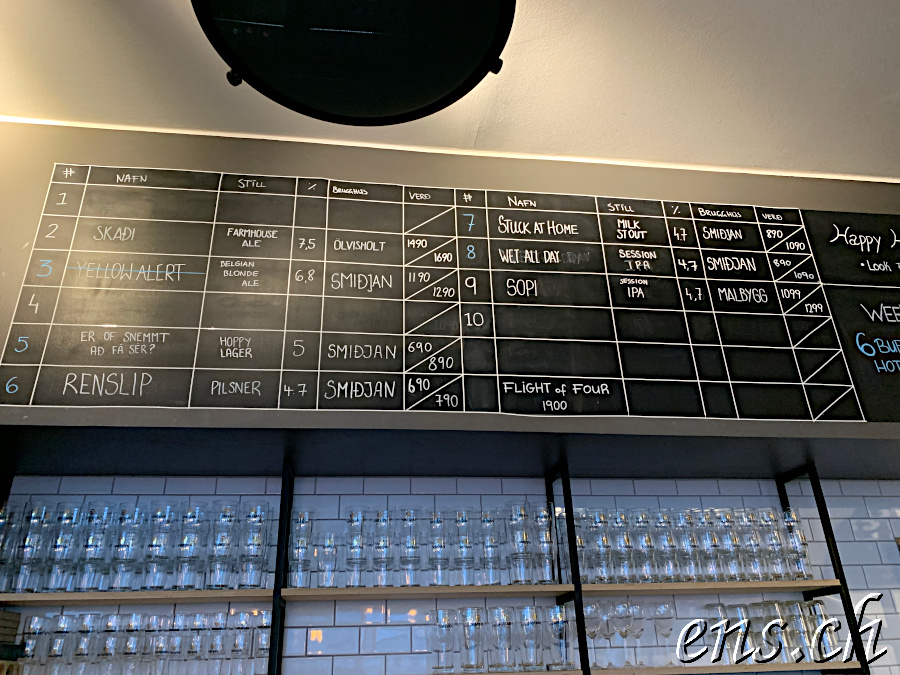 # NAFN STÍLL % BRUGGHÚS VERÐ
1
2 SKAÐI FARMHOUSE ALE 7,5 ÖLVISHOLT 1490 1690
3 YELLOW ALERT BELGIAN BLONDE ALE 6,8 SMIÐJAN 1190 1290
4
5 ER OF SNEMMT AÐ FÁ SÉR? HOPPY LAGER 5 SMIÐJAN 690 890
6 RENSLIP PILSNER 4.7 SMIÐJAN 690 790
# NAFN STÍLL % BRUGGHÚS VERÐ
7 STUCK AT HOME MILK STOUT 4,7 SMIÐJAN 890 1090
8 WET ALL DAY SESSION IPA 4,7 SMIÐJAN 890 1090
9 SOPI SESSION IPA 4,7 MALBYGG 1099 1299
10
FLIGHT of FOUR
1900
Happy
• LOOK
6
ens.ch